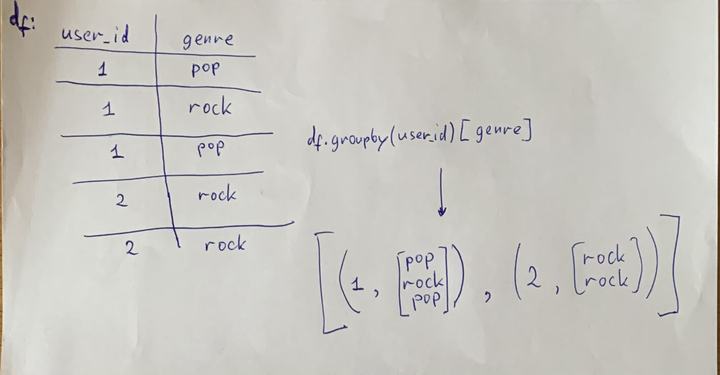 df:
user_id genre
1 pop
1 rock
1 pop
2 rock
2 rock
df.groupby(user_id)[genre]
[(1, [pop
rock
pop]), (2, [rock
rock])]